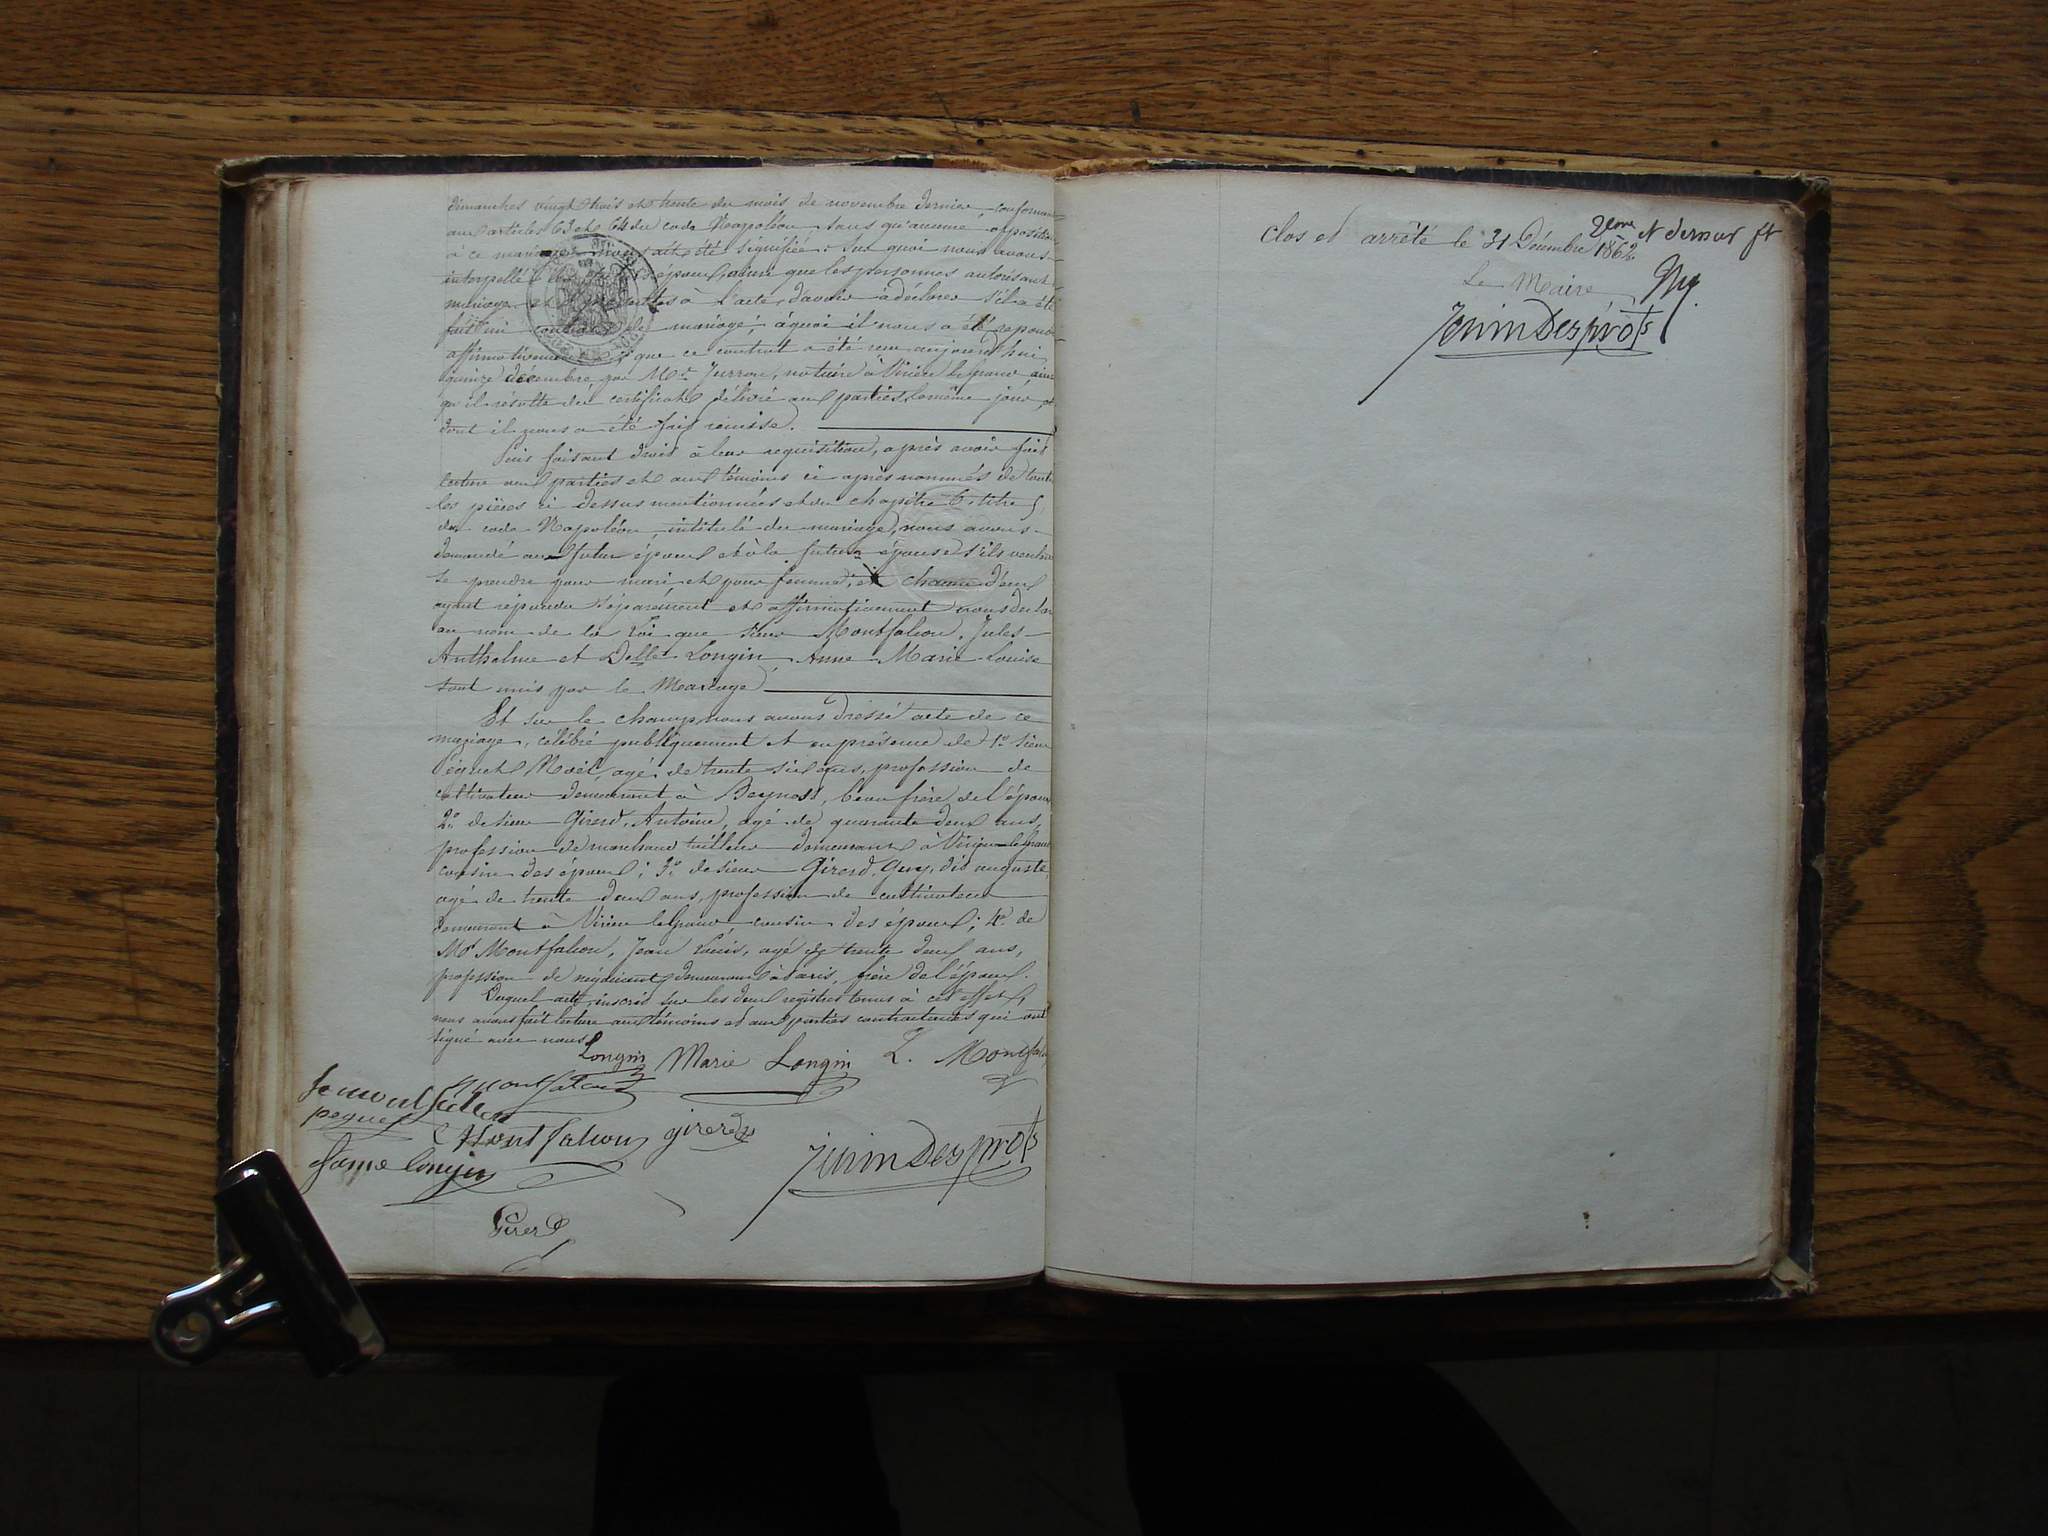 dimanches vingt trois et trente du mois de novembre dernier, conformém
aux articles 63 et 64 du code Napoléon sans qu'aucune opposition
à ce mariage nous ait été signifiée. Sur quoi nous avons
interpellé les futurs époux, ainsi que les personnes autorisant le
mariage et présentes à l'acte, d'avoir à déclarer s'il a été
fait un contrat de mariage; à quoi il nous a été répondu
affirmativement et que ce contrat a été reçu aujourd'hui
quinze décembre par Me notaire à Virieu le grand, ainsi
qu'il résulte du certificat délivré aux parties le même jour, et
dont il nous a été fait remise.
Puis faisant droit à leur requisition, après avoir fait
lecture aux parties et aux témoins ci après nommés de toutes
les pièces ci dessus mentionnées et du chapitre 6, titre 5
du code Napoléon, intitulé du mariage, nous avons
demandé au futur époux et à la future épouse s'ils veulent
se prendre pour mari et pour femme; et chacun d'eux
ayant répondu séparément et affirmativement nous déclarons
au nom de la Loi que sieur Montfalcon, Jules
Anthelme et Delle Longin, Anne Marie Louise
sont unis par le Mariage
Et sur le champ, nous avons dressé acte de ce
mariage, célébré publiquement et en présence de 1º. sieur
Péquet Noël, agé de trente six ans, profession de
cultivateur demeurant à Beynost, beau frère de l'époux
2º. de sieur Girerd, Antoine, agé de quarante deux ans,
profession de marchand tailleur demeurant à Virieu-le-Grand
cousin des époux; 3º. de sieur Girerd, Guy, dit auguste,
agé de trente deux ans, profession de cultivateur
demeurant à Virieu le Grand, cousin des époux; 4º. de
Mr Montfalcon, Jean Louis, agé de trente deux ans,
profession de négociant, demeurant à Paris, frère de l'époux.
Duquel acte, inscrit sur les deux registres tenus à cet effet,
nous avons fait lecture aux témoins et aux parties contractantes qui ont
signé avec nous
Longin Marie Longin L. Montfalcon
Montfalcon
péquet
Montfalcon girerd
Longin JeninDesprôts
Girerd
2eme et dernier ft
clos et arrêté le 31 Décembre 1862
Le Maire
JeninDesprôts